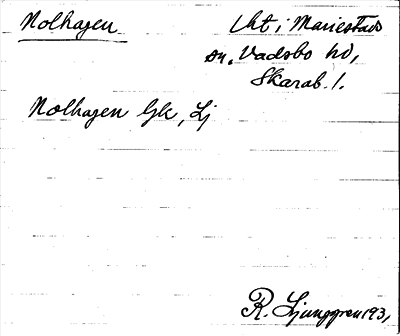 Nolhagen
Lht i Mariestads
sn, Vadsbo hd,
Skarab. l.
Nolhagen Gk, Lj
R. Ljunggren 1931